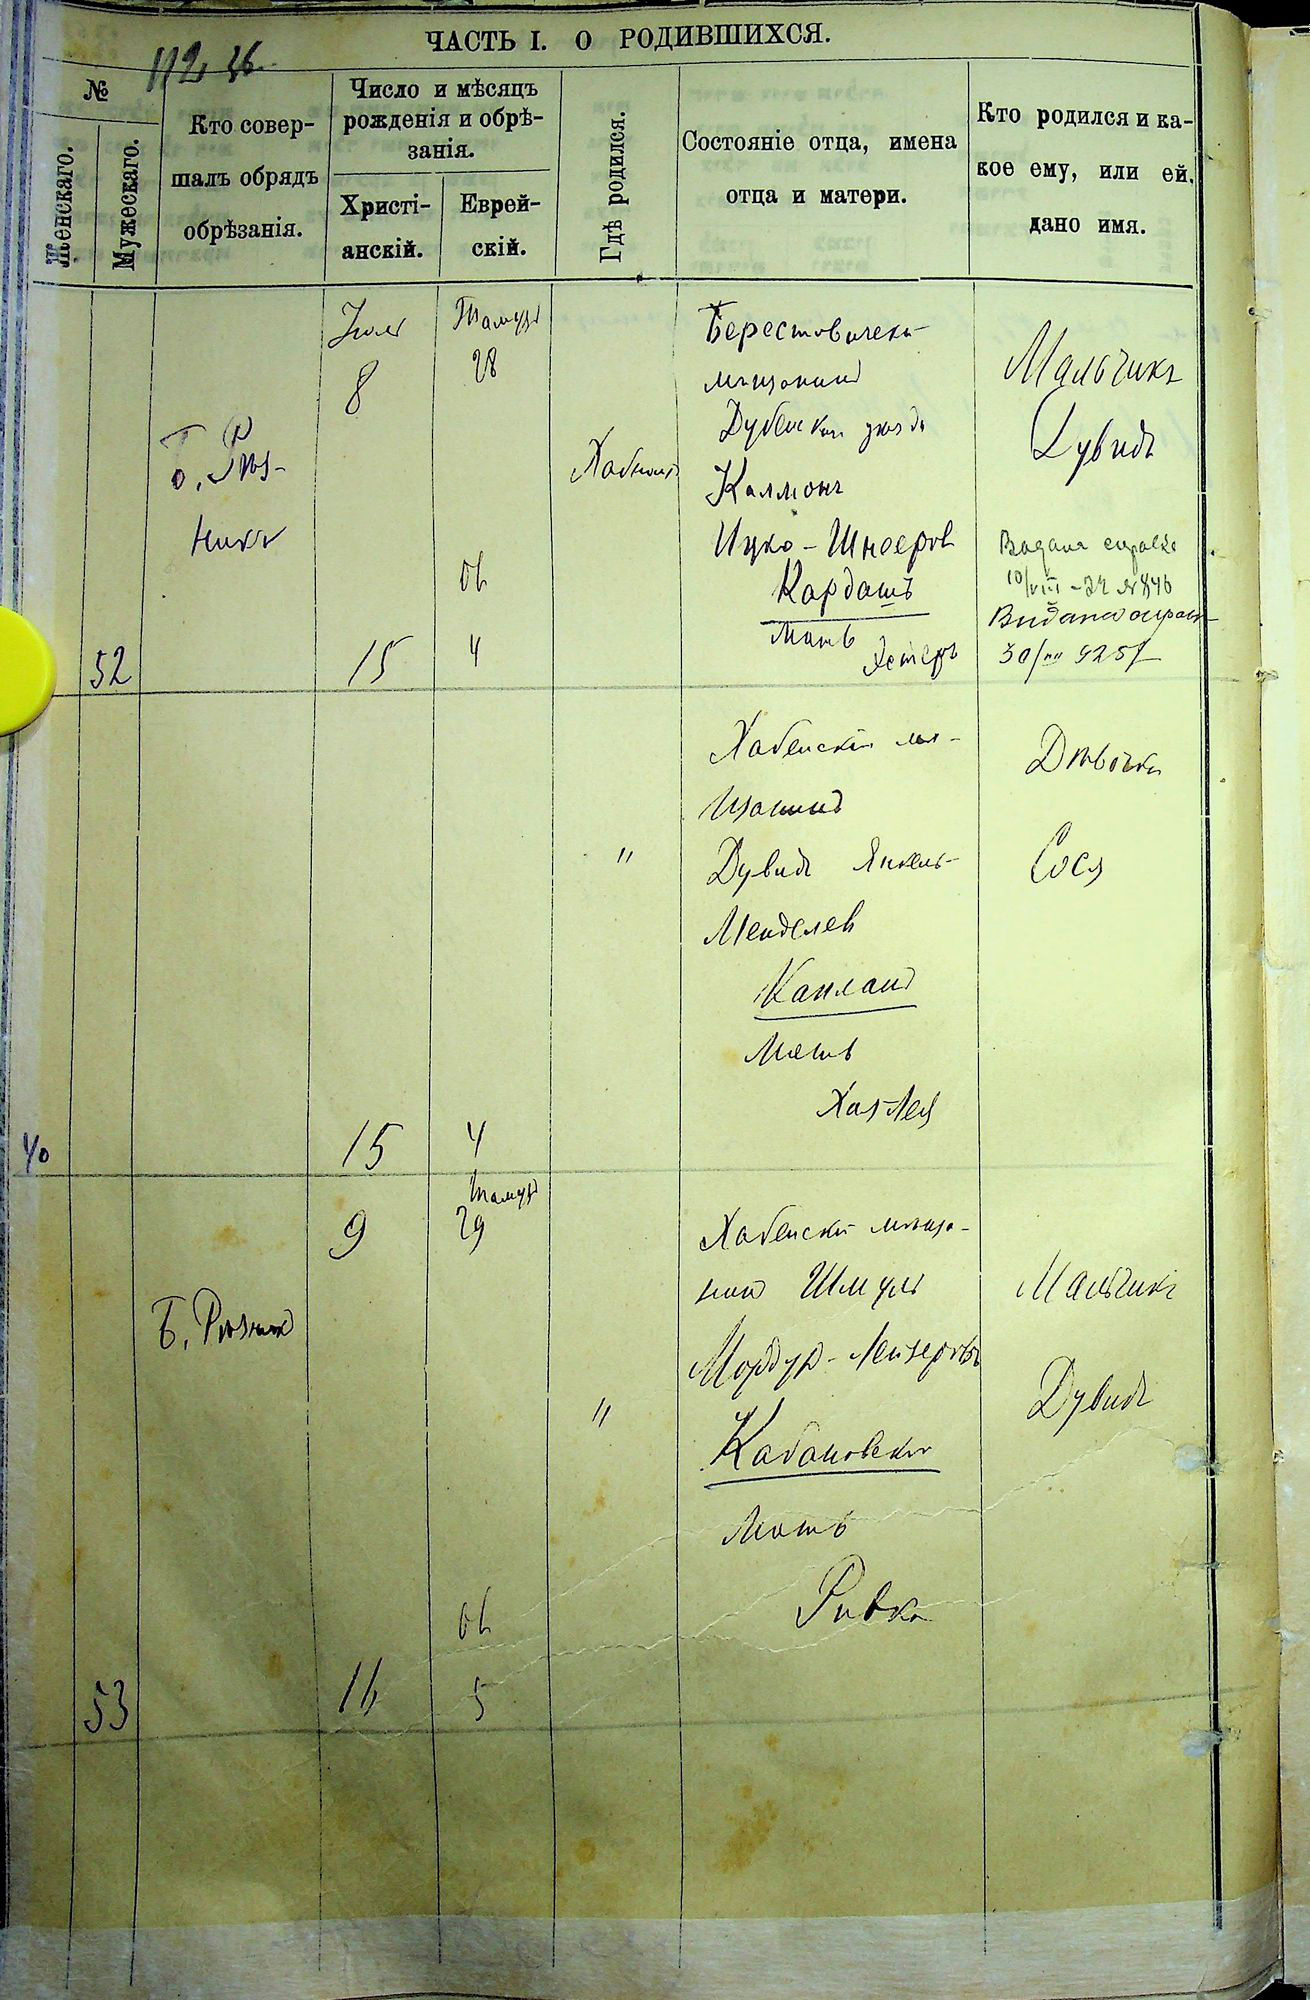 ЧАСТЬ I. О РОДИВШИХСЯ.
№
Женскаго.
Мужескаго.
Кто совер-
шалъ обрядъ
обрѣзанія.
Число и мѣсяцъ
рожденія и обрѣ-
занія.
Христі-
анскій.
Еврей-
скій.
Гдѣ родился.
Состояніе отца, имена
отца и матери.
Кто родился и ка-
кое ему, или ей,
дано имя.
52
Б. Рѣз-
никъ
8
15
Тамузъ
28
Ов
4
Мѣщанинъ
Дубенскаго уѣзда
Калманъ
Ицко-Шнееров
Кардашъ
Мать
Эстеръ
Мальчикъ
Дувидъ
Выдана
40
15
4
"
Хабенскій мѣ-
щанинъ
Дувидъ Янкель-
Менделев
Капланъ
Мать
Хая-Лея
Дѣвочка
Сося
53
Б. Рѣзникъ
9
16
Тамузъ
29
Ов
5
"
Хабенскій мѣща-
нин Шмуль
Мордух-Лейзеровъ
Кабановскій
Мать
Ривка
Мальчикъ
Дувидъ